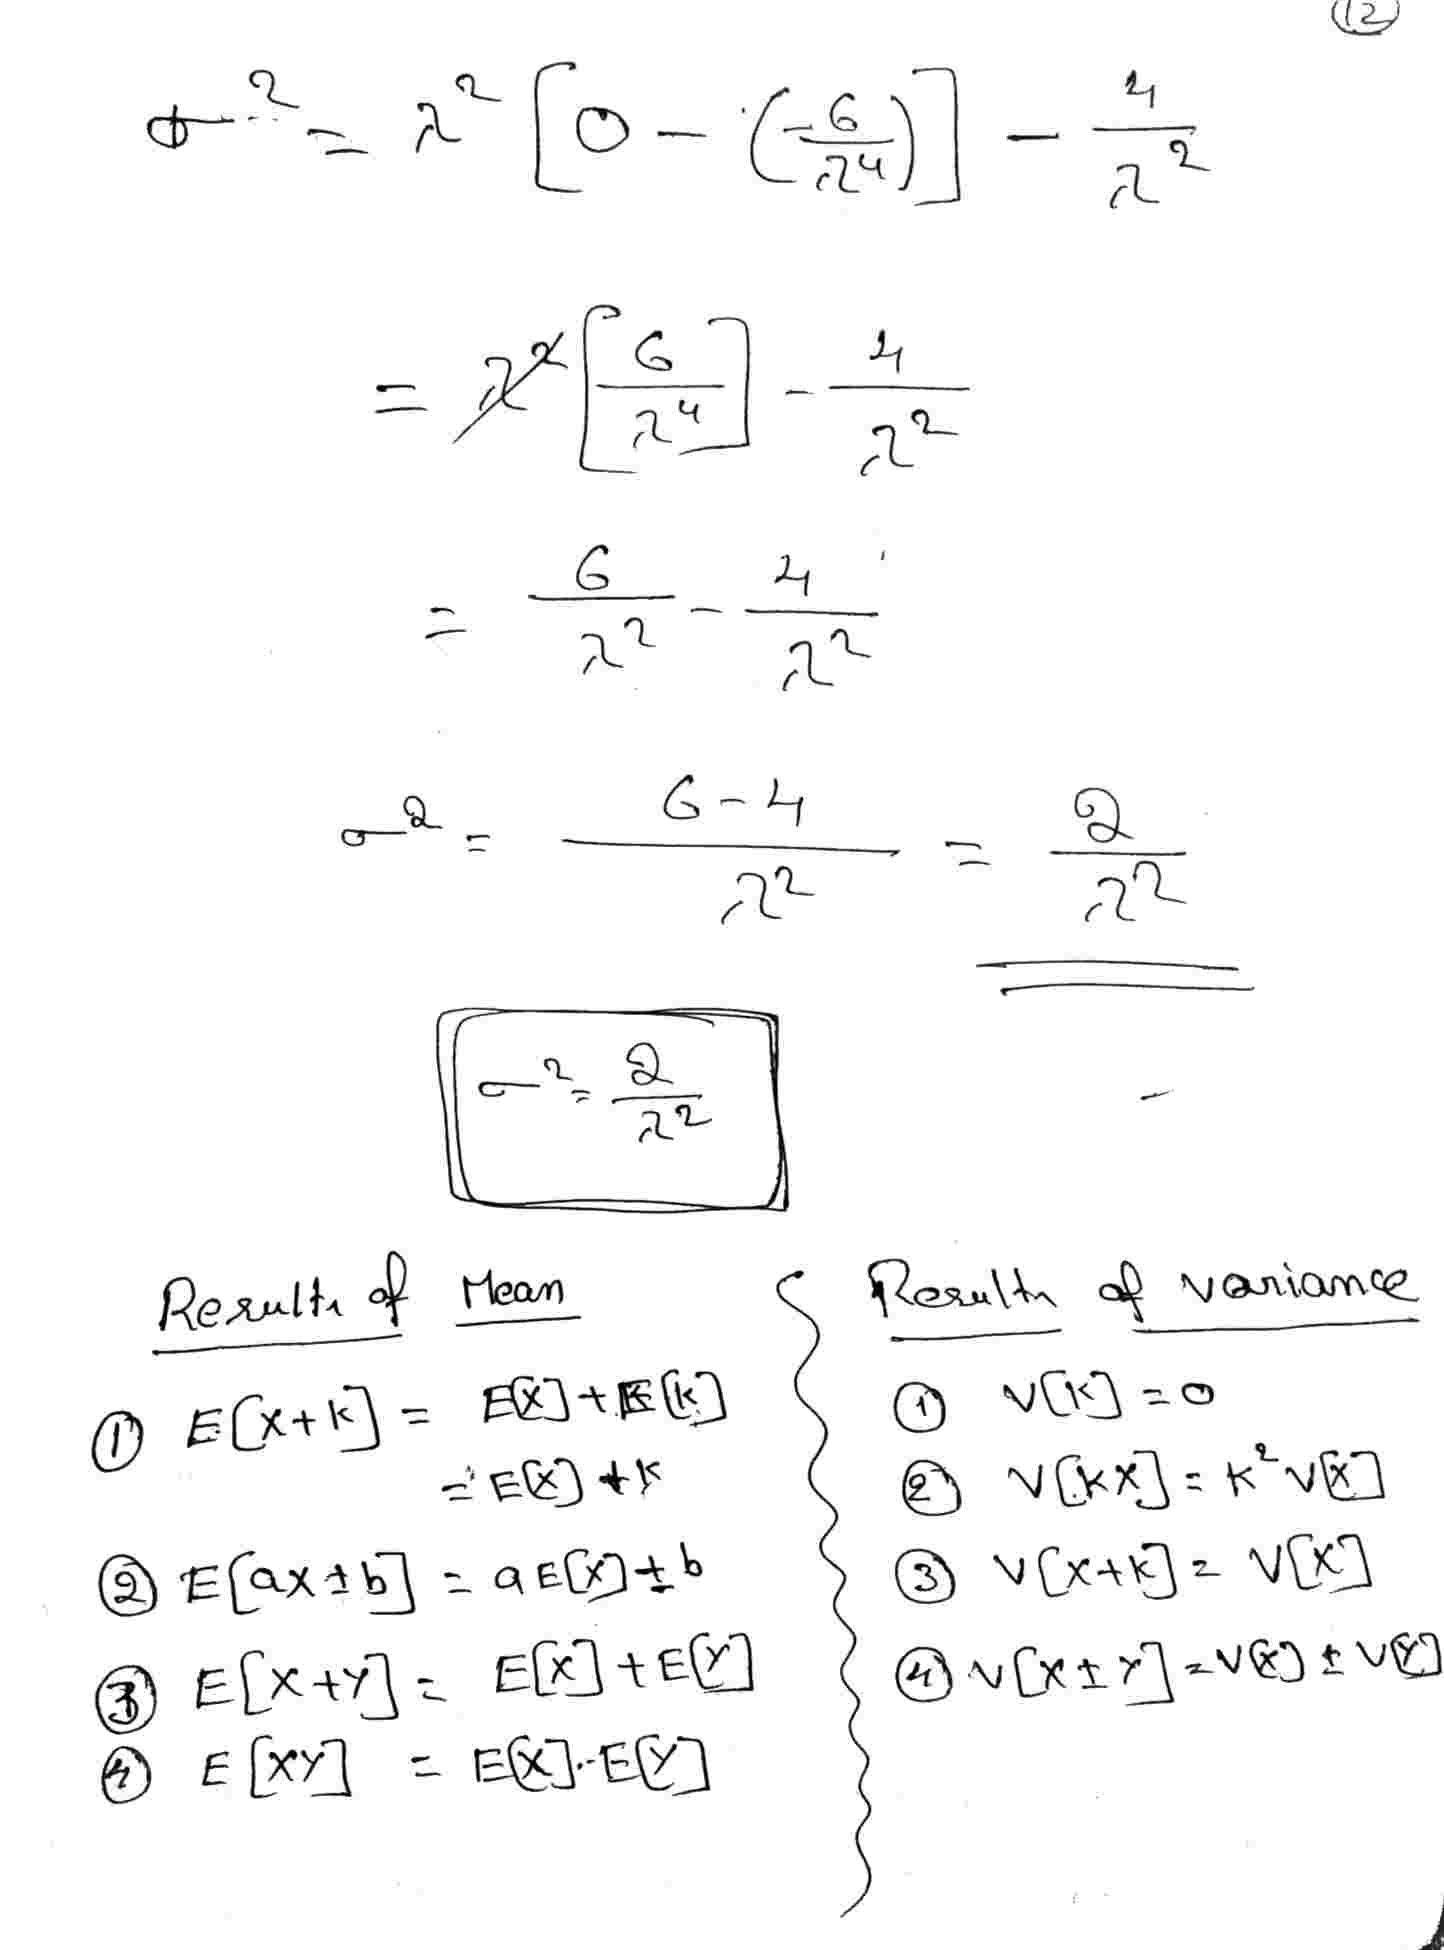 (12)
σ² = λ² [0 - (-6/λ⁴)] - 4/λ²
= λ² [6/λ⁴] - 4/λ²
= 6/λ² - 4/λ²
σ² = 6-4/λ² = 2/λ²
σ² = 2/λ²
Results of Mean
① E[X+K] = E[X] + E[K]
= E[X] + K
② E[ax±b] = a E[X] ± b
③ E[X+Y] = E[X] + E[Y]
④ E[XY] = E[X].E[Y]
Results of variance
① V[K] = 0
② V[KX] = K² V[X]
③ V[X+K] = V[X]
④ V[X±Y] = V[X] ± V[Y]